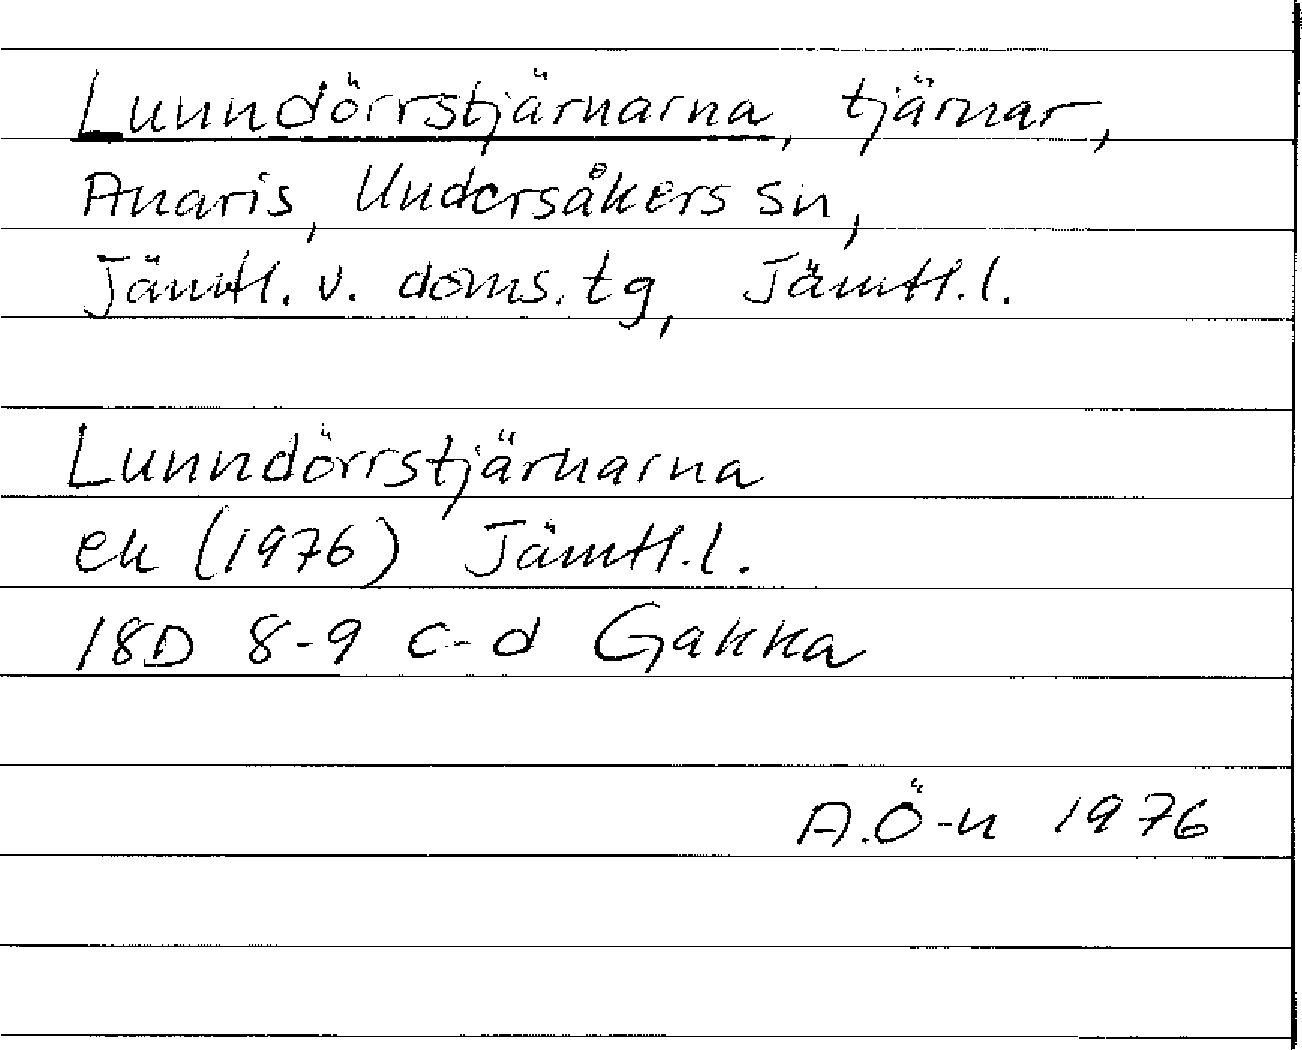 Lunndörrstjärnarna, tjärnar,
Anaris, Undersåkers sn,
Jämtl. v. doms. tg, Jämtl. l.
Lunndörrstjärnarna
ek (1976) Jämtl. l.
18D 8-9 c-d Gakka
A.Ö-n 1976